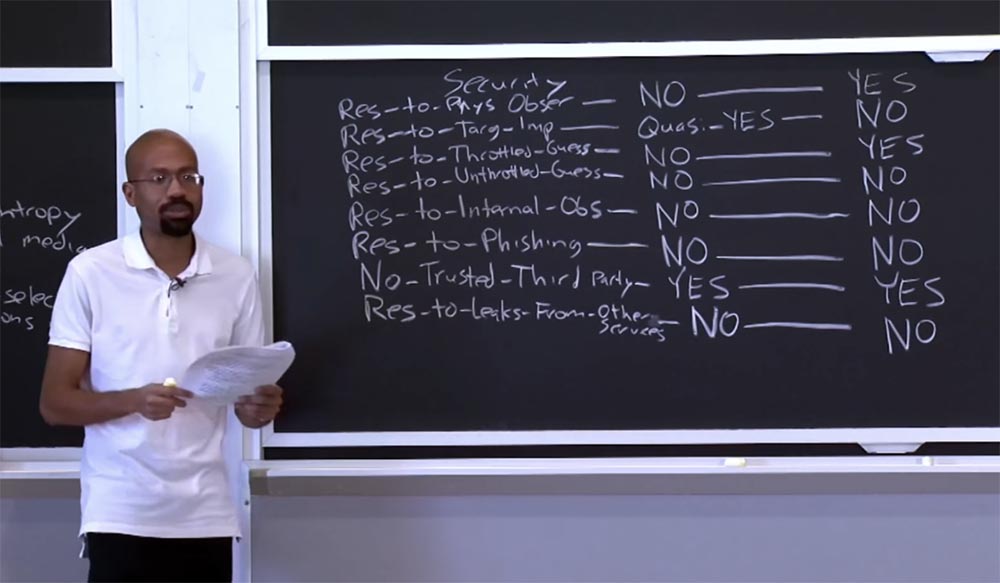 ntropy
media
selec
ons
Security
Res-to-Phys Obser — NO — YES
Res-to-Targ-Imp — Quasi-YES — NO
Res-to-Throttled-Guess — NO — YES
Res-to-Unthrottled-Guess — NO — NO
Res-to-Internal-Obs — NO — NO
Res-to-Phishing — NO — NO
No-Trusted-Third Party — YES — YES
Res-to-Leaks-From-Other Services — NO — NO